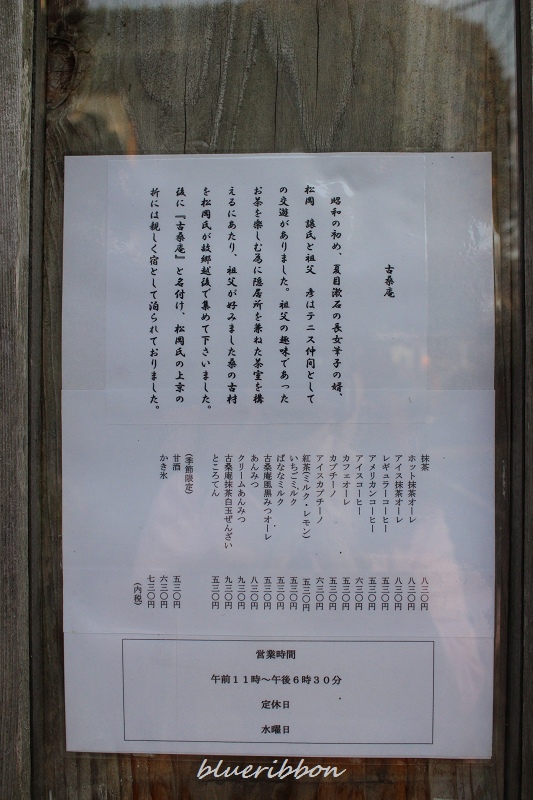 古桑庵
昭和の初め、夏目漱石の長女筆子の婿、
松岡　譲氏と祖父　彦はテニス仲間として
の交遊がありました。祖父の趣味であった
お茶を楽しむ為に隠居所を兼ねた茶室を構
えるにあたり、祖父が好みました桑の古材
を松岡氏が故郷越後で集めて下さいました。
後に『古桑庵』と名付け、松岡氏の上京の
折には親しく宿として泊られておりました。
抹茶 八二〇円
ホット抹茶オーレ 八三〇円
アイス抹茶オーレ 八三〇円
レギュラーコーヒー 五三〇円
アメリカンコーヒー 五三〇円
アイスコーヒー 六三〇円
カフェオーレ 五三〇円
カプチーノ 五三〇円
アイスカプチーノ 六三〇円
紅茶(ミルク・レモン) 五三〇円
いちごミルク 五三〇円
ばななミルク 五三〇円
古桑庵風黒みつオーレ 五三〇円
あんみつ 八三〇円
クリームあんみつ 九三〇円
古桑庵抹茶白玉ぜんざい 九三〇円
ところてん 五三〇円
(季節限定)
甘酒 五三〇円
かき氷 六三〇円
七三〇円
(内税)
営業時間
午前１１時～午後６時３０分
定休日
水曜日
blueribbon